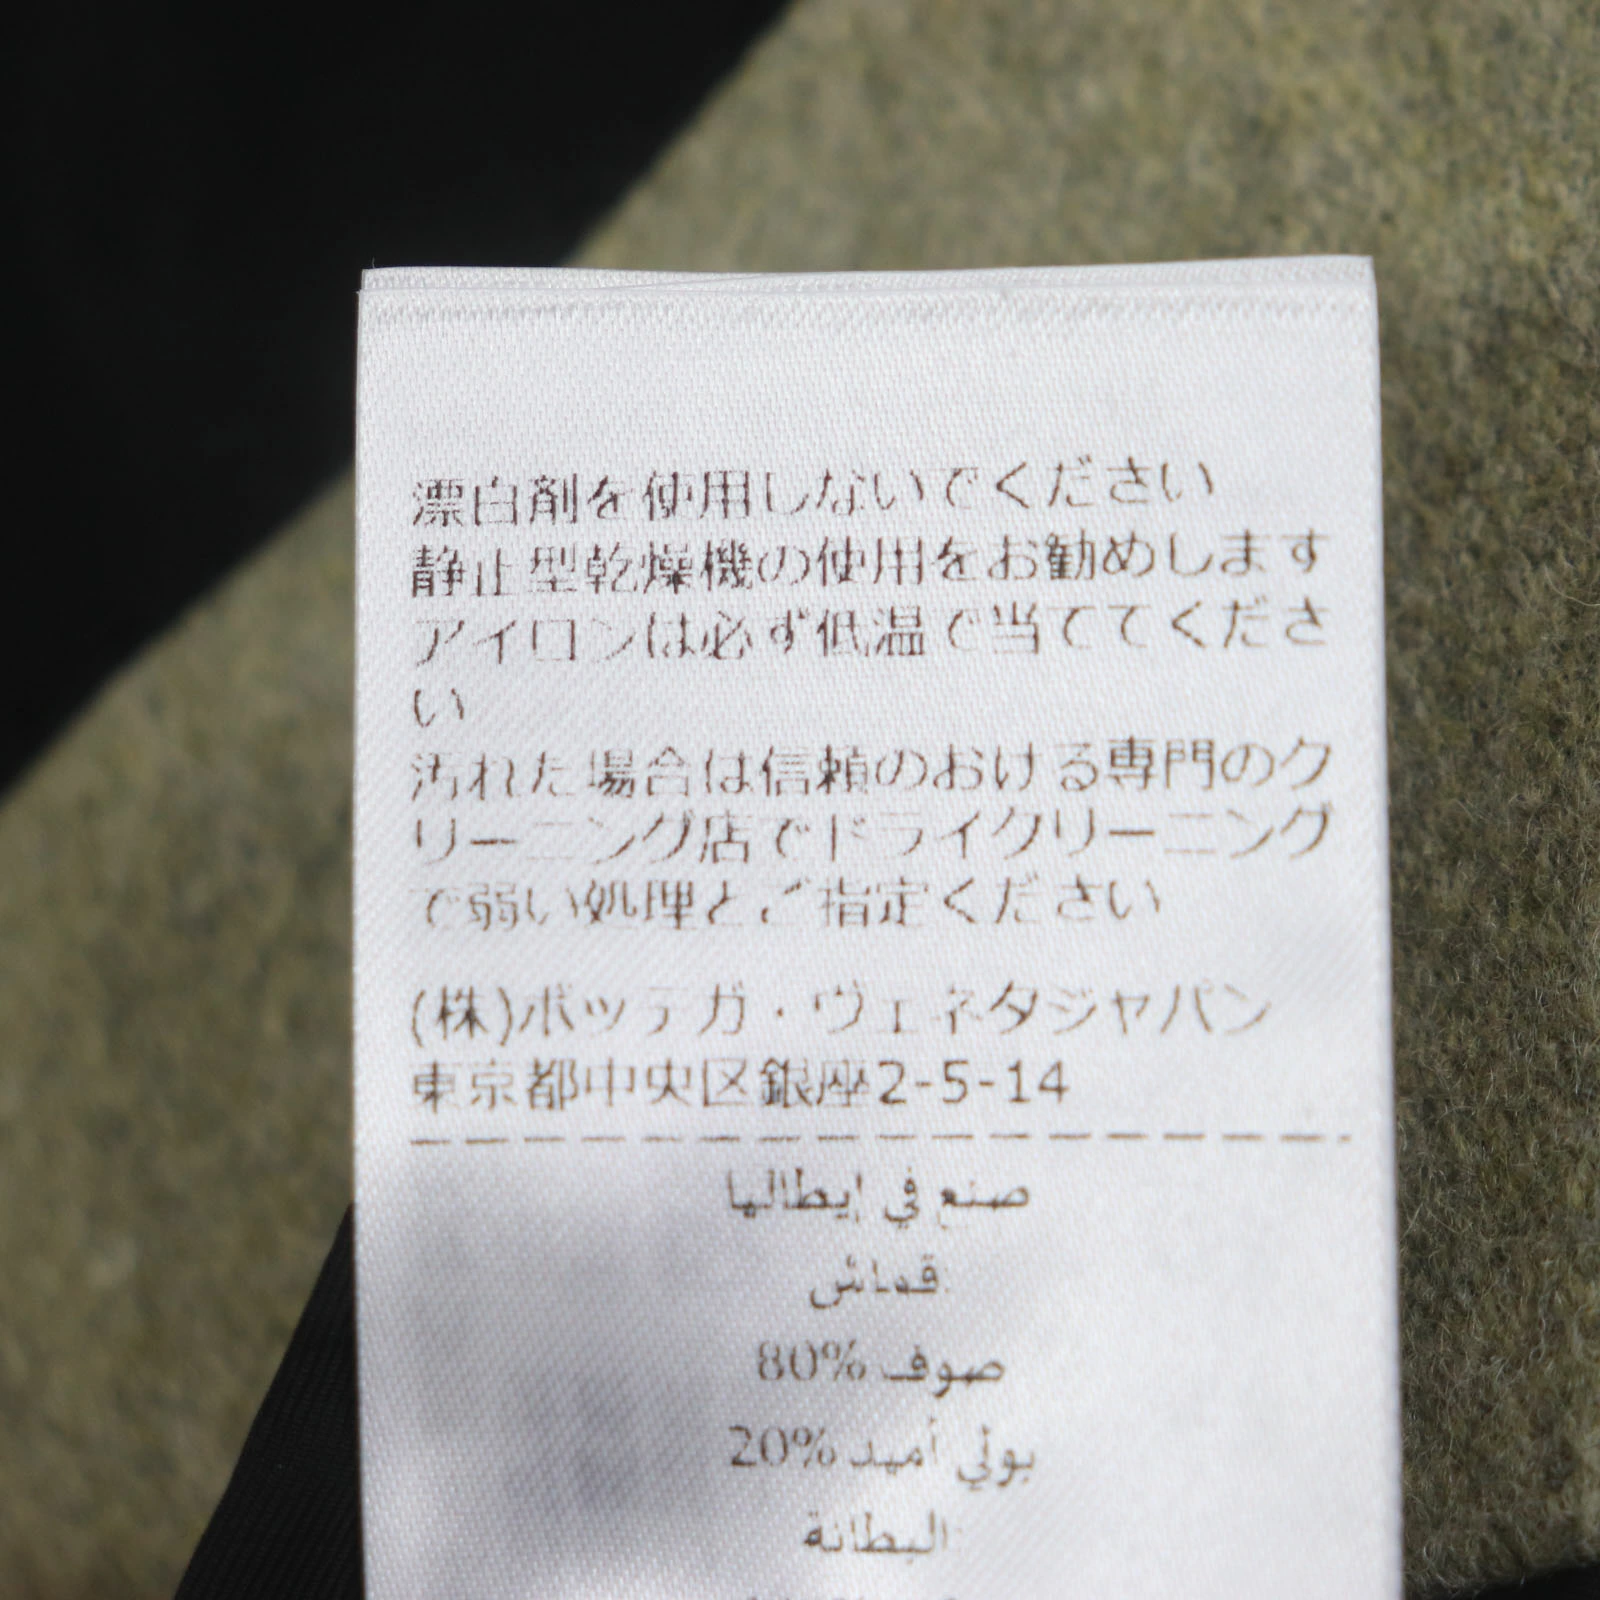 漂白剤を使用しないでください
静止型乾燥機の使用をお勧めします
アイロンは必ず低温で当ててくださ
い
汚れた場合は信頼のおける専門のク
リーニング店でドライクリーニング
で弱い処理とご指定ください
(株)ボッテガ・ヴェネタジャパン
東京都中央区銀座2-5-14
صنع في إيطاليا
قماش:
صوف 80%
بولي أميد 20%
البطانة: